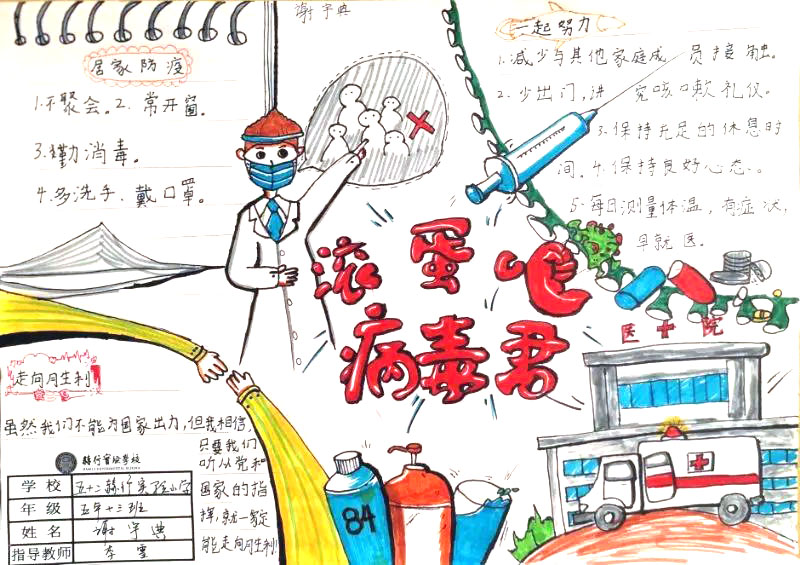 谢宇典
居家防疫
1.不聚会。2.常开窗。
3.勤消毒。
4.多洗手、戴口罩。
一起努力
1.减少与其他家庭成员接触。
2.少出门,讲究咳嗽礼仪。
3.保持充足的休息时
间。4.保持良好心态。
5.每日测量体温,有症状,
早就医。
滚蛋吧
病毒君
医十院
走向胜利
虽然我们不能为国家出力,但我相信,
只要我们
听从党和
国家的指
挥,就一定
能走向胜利!
学校
年级 五年十三班
姓名 谢宇典
指导教师 李雪
84